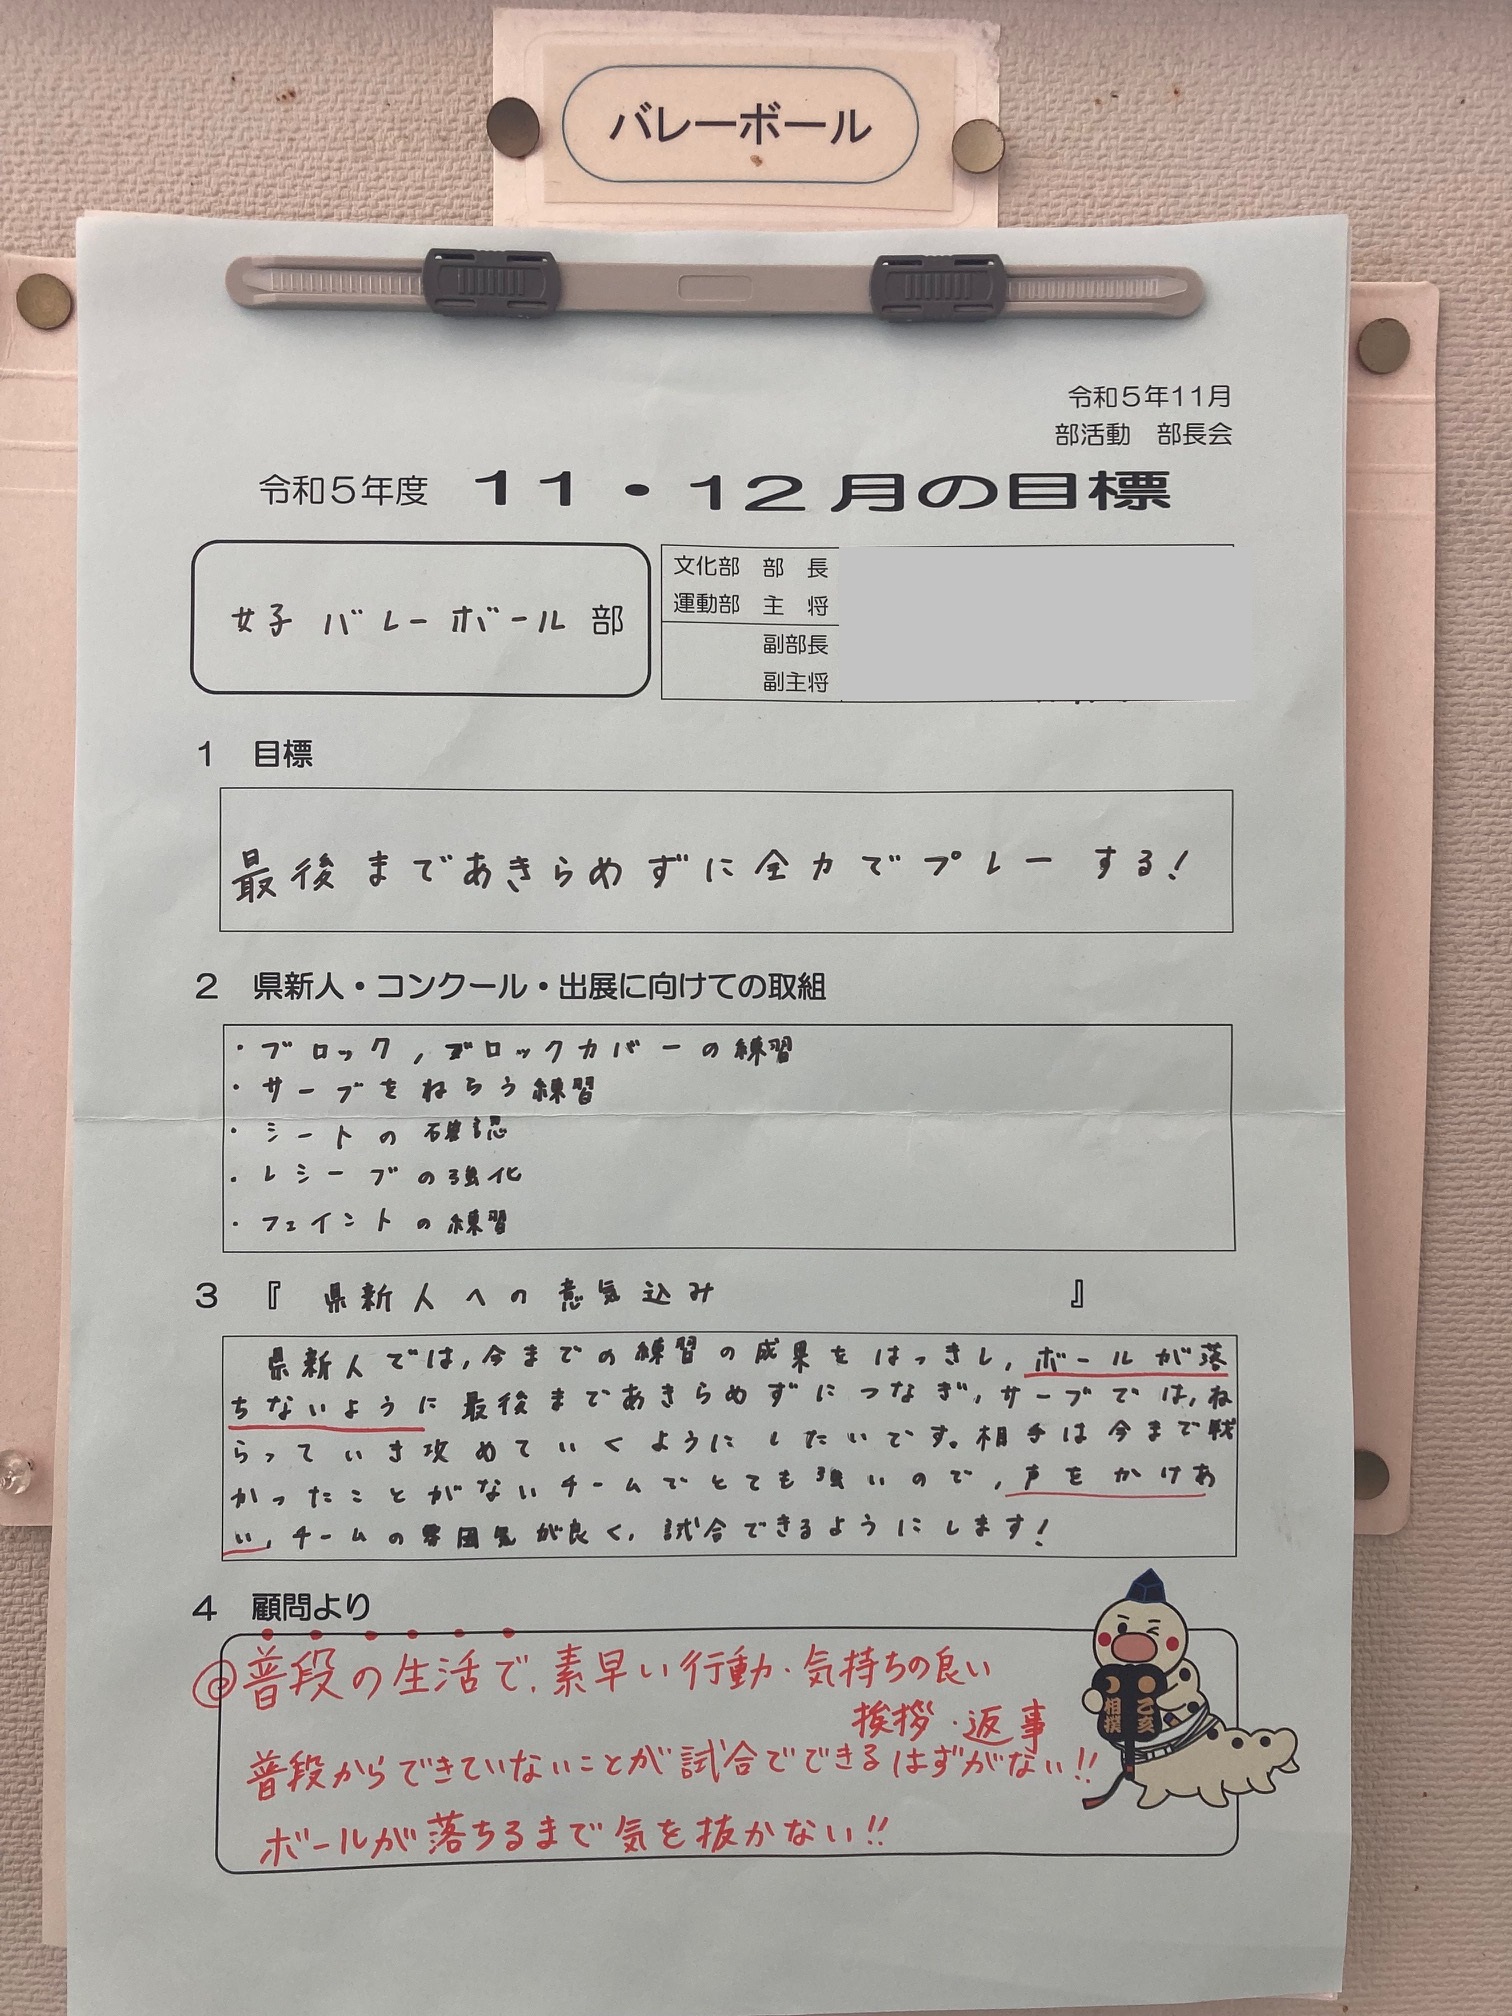 バレーボール
令和5年11月
部活動　部長会
令和5年度　11・12月の目標
女子バレーボール部
文化部　部　長
運動部　主　将
副部長
副主将
1　目標
最後まであきらめずに全力でプレーする!
2　県新人・コンクール・出展に向けての取組
・ブロック,ブロックカバーの練習
・サーブをねらう練習
・シートの確認
・レシーブの強化
・フェイントの練習
3　『県新人への意気込み』
県新人では,今までの練習の成果をはっきし,ボールが落
ちないように最後まであきらめずにつなぎ,サーブでは,ね
らっていき攻めていくようにしたいです。相手は今まで戦
かったことがないチームでとても強いので,声をかけあ
い,チームの雰囲気が良く,試合できるようにします!
4　顧問より
◎普段の生活で、素早い行動・気持ちの良い
挨拶・返事
普段からできていないことが試合でできるはずがない!!
ボールが落ちるまで気を抜かない!!
乙亥
相撲